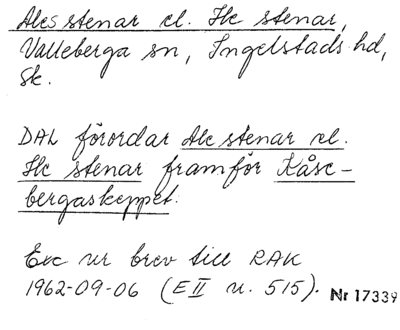 Ales stenar el. Ale stenar,
Valleberga sn, Ingelstads hd,
Sk.
DAL förordar Ale stenar el.
Ale stenar framför Kåse-
bergaskeppet.
Exc ur brev till RAK
1962-09-06 (E II u. 515).
Nr 17339